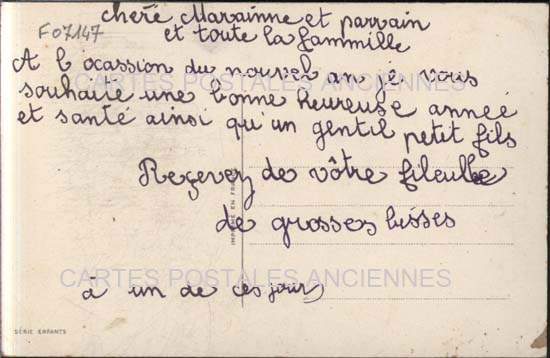 cherè Marainne et parrain
et toute la fammille
F07147
A l ocassion du nouvel an je vous
CARTES POSTALES ANCIENNES
souhaite une bonne heureuse année
et santé ainsi qu'un gentil petit fils
Reçevez de vôtre fileulle
IMPRIMÉ EN FRANCE
de grosses bisses
CARTES POSTALES ANCIENNES
à un de ces jours
SÉRIE ENFANTS